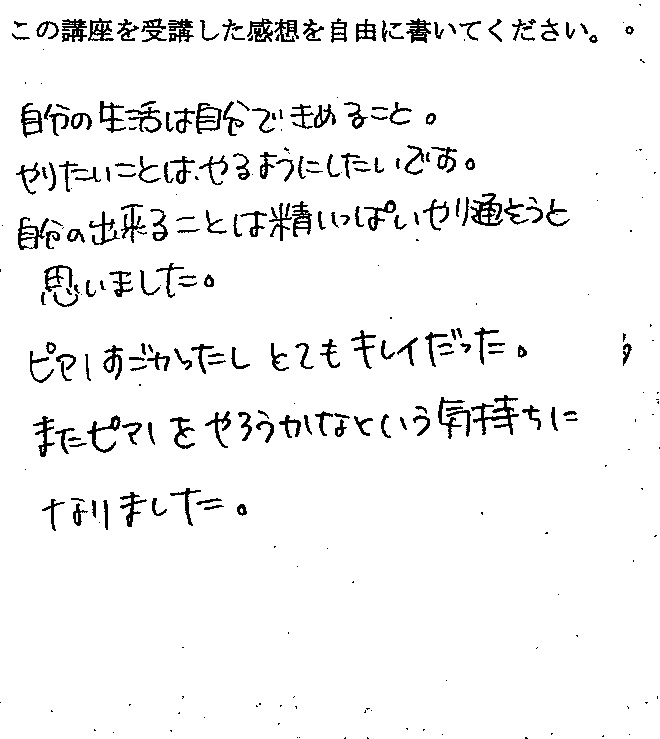 この講座を受講した感想を自由に書いてください。
自分の生活は自分できめること。
やりたいことは、やるようにしたいです。
自分の出来ることは精いっぱいやり通そうと
思いました。
ピアノすごかったし とてもキレイだった。
またピアノをやろうかなという気持ちに
なりました。